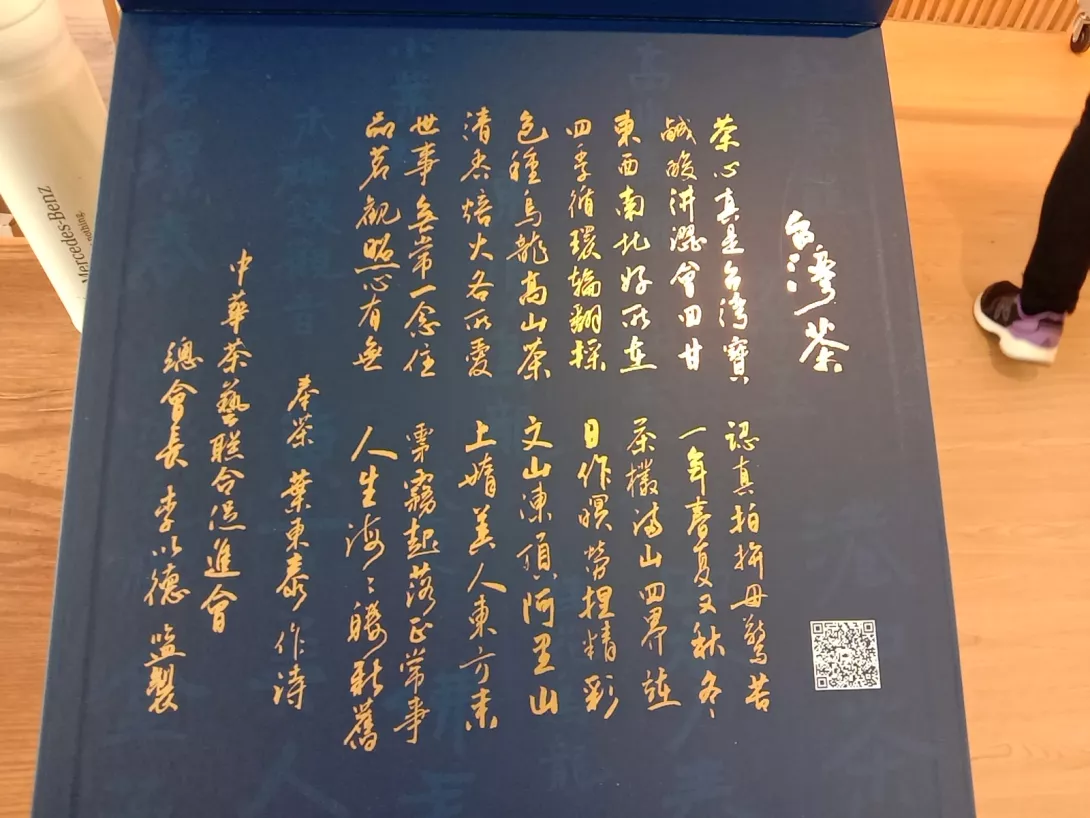 台灣茶
茶心真是台灣寶 認真拍拚毋驚苦
鹹酸汫澀會回甘 一年春夏又秋冬
東西南北好所在 茶欉滿山四界
四季循環輪翻採 日作暝勞捏精彩
色種烏龍高山茶 文山凍頂阿里山
清香焙火各所愛 上媠美人東方來
世事無常一念住 雲霧起落正常事
品茗觀照心有無 人生海〻新舊
奉茶 葉東泰 作詩
中華茶藝聯合促進會
總會長 李以德 監製
Mercedes-Benz